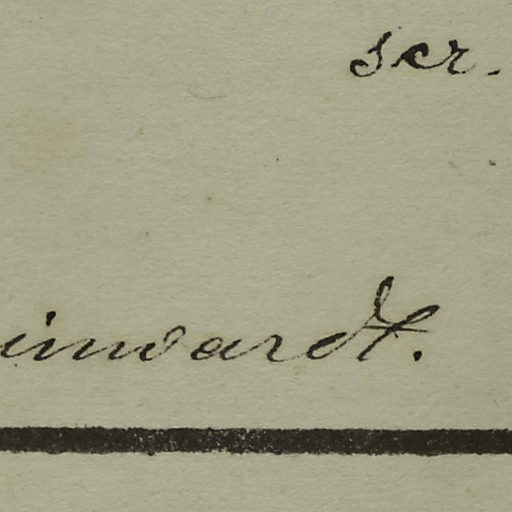 scr.
inwardt.